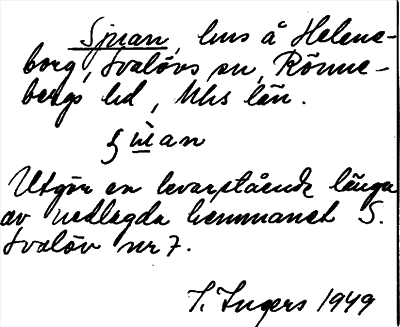 Sjuan, hus å Helene-
borg, Svalövs sn, Rönne-
bergs hd, Mhs län.
ʃʉ̀an
Utgör en kvarstående länga
av nedlagda hemmanet S.
Svalöv nr 7.
I. Ingers 1949